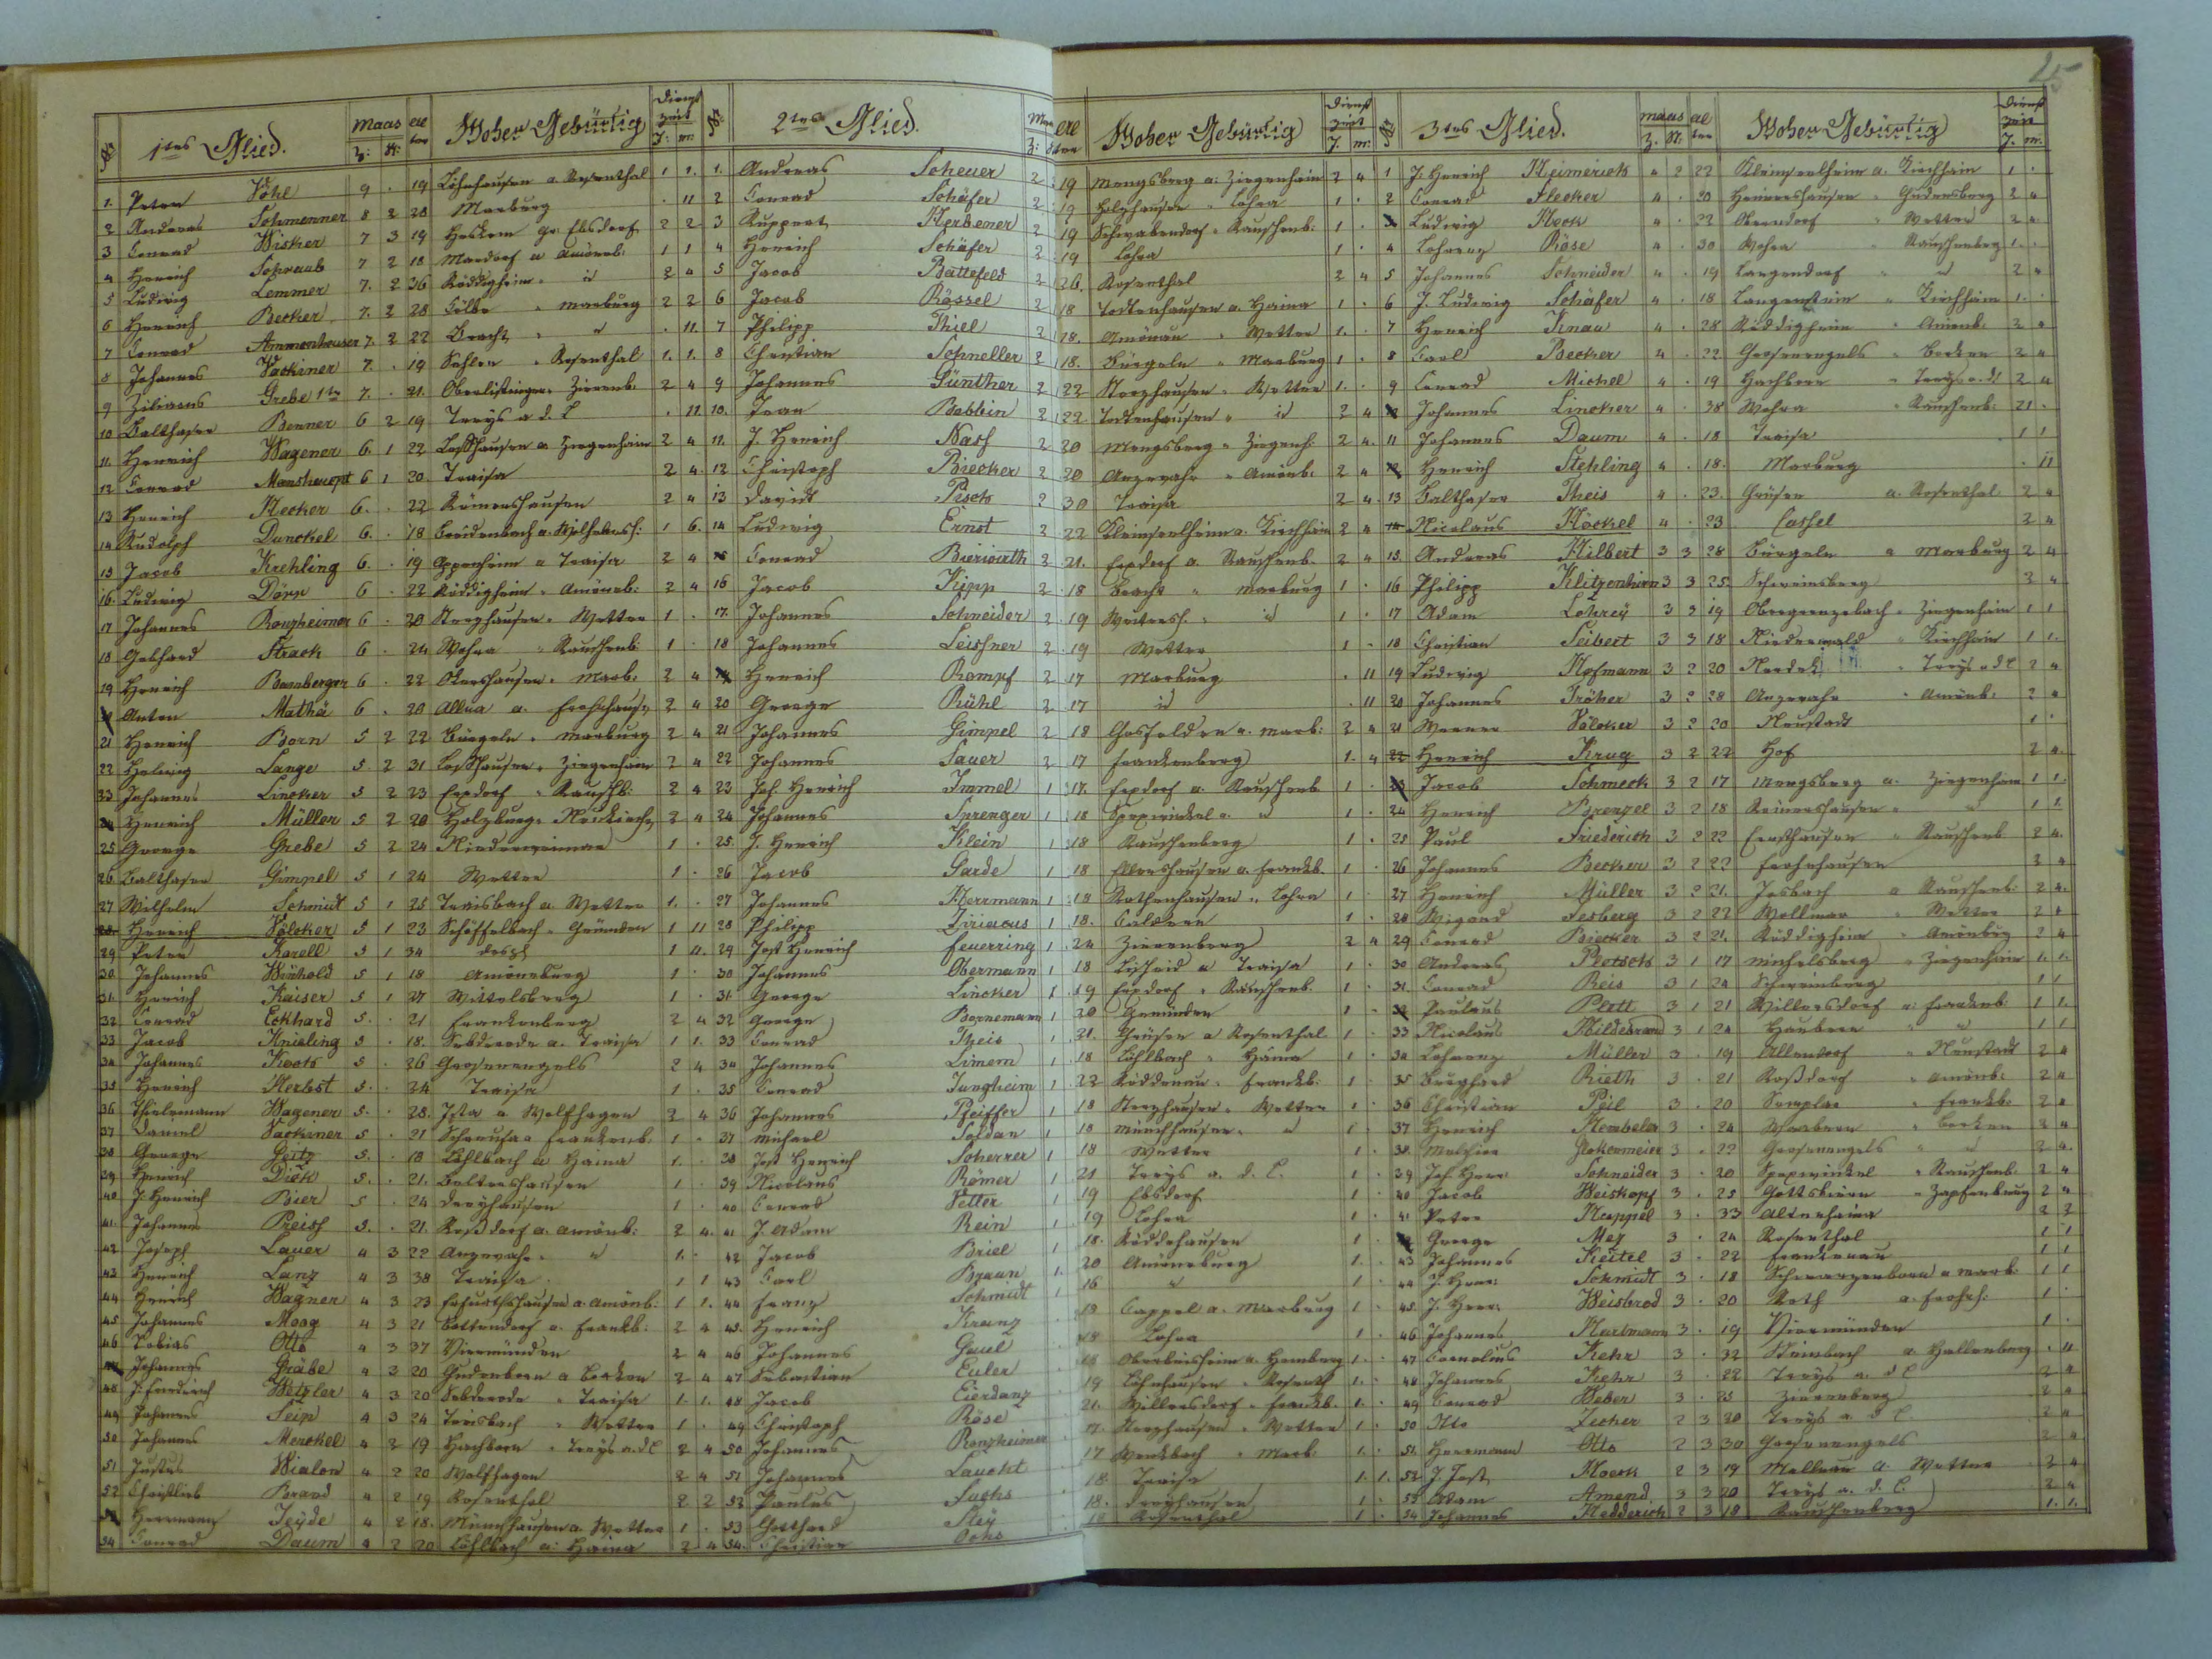 25
№ 1tes Glied. Maas Z: St: Alter Woher Gebürtig Dienstzeit J: M:
1. Peter Vöhl 9 . 19 Löhnhausen a. Rosenthal 1 1.
2 Andreas Schmenner 8 2 28 Marburg . 11
3 Conrad Wisker 7 3 19 Heskem Ebsdorf 2 2
4 Henrich Schwaab 7 2 18 Mardorf a Amöneb: 1 1
5 Ludwig Lemmer 7. 2 36 Rüddigheim " id 2 4
6 Henrich Becker 7. 2 28 Cölbe " Marburg 2 2
7 Conrad Ammenhauser 7. 2 22 Bracht " " . 11.
8 Johannes Vackiner 7. . 19 Sehlen " Rosenthal 1. 1.
9 Ziliacus Grebe 1te 7. . 21. Oberlistingen " Zierenb: 2 4
10 Balthaser Benner 6 2 19 Treys a d. L . 11
11. Henrich Wagener 6. 1 22 Loshausen a Ziegenhain 2 4
12 Conrad Manshaupt 6 1 20. Traisa 2 4.
13 Henrich Hecker 6. . 22 Römershausen 2 4
14 Rudolph Dunckel 6. . 18 Breidenbach a. 1 6.
15 Jacob Krehling 6. . 19 a Traisa 2 4
16. Ludwig Dörr 6 . 22 Rüddigheim " Amöneb: 2 4
17 Johannes Ronzheimer 6 . 20 Sterzhausen " Wetter 1 .
18 Gebhard Strack 6 . 24 Wohra " Rauschenb 1 .
19 Henrich Bamberger 6 . 22 Ockershausen " Marb: 2 4
Anton Mathä 6 . 20 Allna a. Fronhausen 2 4
21 Henrich Born 5 2 22 Bürgeln " Marburg 2 4
22 Helwig Lange 5. 2 31 Loshausen " Ziegenhain 2 4
23 Johannes Lincker 5 2 23 Erxdorf " Rauschb: 2 4
Henrich Müller 5 2 20 Holzburg " Neukirch 2 4
25 George Grebe 5 2 24 Niederweimar 1 .
26 Balthaser Gimpel 5 1 24 Wetter 1 .
27 Wilhelm Schmidt 5 1 25 Treisbach a Wetter 1. .
28. Henrich Völcker 5 1 23 Schiffelbach " Gemünden 1 11
29 Peter Karell 5 1 34 1 11.
30 Johannes Weinhold 5 1 18 Amöneburg 1 .
31. Henrich Kaiser 5 1 27 Wittelsberg 1 .
32 Conrad Eckhard 5. . 21 Frankenberg 2 4
33 Jacob Knieling 5 . 18. Sebbeterode a. Traisa 1 1.
34 Johannes Koch 5 . 26 Grosenenglis 2 4
35 Henrich Herbst 5. . 24 Traisa 1 .
36 Thielemann Wagener 5. . 28. Ista a Wolfhagen 2 4
37 Daniel Vackiner 5 . 21 Schreufa a Frankenb. 1 .
38 George Seitz 5. . 18 Löhlbach a Haina 1. .
39 Henrich Dick 5. . 21. Beltershausen 1 .
40 J. Henrich Bier 5 . 24 Dreyhausen 1 .
41. Johannes Preiss 5. . 21. Roßdorf a. Amöneb: 2 4.
42 Joseph Lauer 4 3 22 Anzevahr " " 1. .
43 Henrich Lanz 4 3 38 Traisa 1 1
44 Henrich Wagner 4 3 23 Erfurthshausen a. Amönb: 1 1.
45 Johannes Moog 4 3 21 Battendorf a. Frankb: 2 4
46 Tobias Otto 4 3 37 Viermünden 2 4
Johannes Gräbe 4 3 20 Gudenborn a Borken 2 4
48 J. Friederich Wetzler 4 3 20 Sebbeterode " Traisa 1. 1.
49 Johannes Seip 4 3 24 Treisbach " Wetter 1 .
50 Johannes Merckel 4 2 19 Hachborn " Treys a.d.L 2 4
51 Justus Wialon 4 2 20 Wolfhagen 2 4
52 Christlieb Brand 4 2 19 Rosenthal 2 2
Herrmann Jeÿde 4 2 18. Münchhausen a. Wetter 1 .
54 Conrad Daum 4 2 20 Löhlbach a: Haina 2 4
№ 2tes Glied. Maas Z: St: Alter Woher Gebürtig Dienstzeit J. M:
1. Andreas Scheuer 2 . 19 Mengsberg a: Ziegenhain 2 4
2 Conrad Schäfer 2 . 19 Holzhausen " Lohra 1 .
3 Ruppert Herbener 2 19 Schwabendorf " Rauschenb: 1 .
4 Henrich Schäfer 2 . 19 Lohra 1 .
5 Jacob Battefeld 2 26. Rosenthal 2 4
6 Jacob Rössel 2 18 Todtenhausen a. Haina 1 .
7 Philipp Thiel 2 18. Amönau " Wetter 1. .
8 Christian Schneller 2 18. Bürgeln " Marburg 1 .
9 Johannes Günther 2 22 Sterzhausen " Wetter 1. .
10. Jean Bobbin 2 22 Todtenhausen " id 2 4
11. J. Henrich Nass 2 20 Mengsberg " Ziegenh: 2 4.
12 Christoph Biecker 2 20 Anzevahr " Amönb: 2 4
13 David Pesch 2 30 Traisa 2 4.
14 Ludwig Ernst 2 22 Kleinseelheim a. Kirchhain 2 4
Conrad Bierwirth 2 . 21. Erxdorf a. Rauschenb. 2 4
16 Jacob Kipp 2 . 18 Bracht " Marburg 1 .
17. Johannes Schneider 2 . 19 Weitersh. " id 1 .
18 Johannes Leissner 2 . 19 Wetter 1 .
Henrich Rompf 2 17 Marburg . 11
20 George Rühl 2 17 id . 11
21 Johannes Gimpel 2 18 Gosfelden a. Marb: 2 4
22 Johannes Sauer 2 17 Frankenberg 1. 4
23 Joh. Henrich Immel 1 17. Erxdorf a. Rauschenb 1 .
24 Johannes Sprenger 1 18 Speckswinkel a. id 1 .
25. J. Henrich Klein 1 18 Rauschenberg 1 .
26 Jacob Garde 1 18 Ellershausen a. Frankb. 1 .
27 Johannes Herrmann 1 18 Rothenhausen " Lohra 1 .
28 Philipp Ziriacus 1 18. Caldern 1 .
29 Jost Henrich Feuerring 1 24 Zierenberg 2 4
30 Johannes Obermann 1 18 Lischeid a Traisa 1 .
31. George Lincker 1 19 Erxdorf " Rauschenb. 1 .
32 George Bornemann 1 20 Gemünden 1 .
33 Conrad Theis 1 21. Grüsen a Rosenthal 1 .
34 Johannes Limem 1 18 Löhlbach " Haina 1 .
35 Conrad Jungheim 1 22 Röddenau " Frankb: 1 .
36 Johannes Pfeiffer 1 18 Sterzhausen " Wetter 1 .
37 Michael Soldan 1 18 Münchhausen " " 1 .
38 Jost Henrich Scherrer 1 18 Wetter 1 .
39 Nicolaus Römer 1 21 Treys a. d. L. 1 .
40. Conrad Vetter 1 19 Ebsdorf 1 .
41 J. Adam Rein 1 19 Lohra 1 .
42 Jacob Briel 1 18. Röddehausen 1 .
43 Carl Braun 1. 20 Amöneburg 1. .
44 Franz Schmidt 1 16 " 1 .
45. Henrich Kranz 19 Cappel a. Marburg 1 .
46 Johannes Gaul 18 Lohra 1 .
47 Sebastian Euler a. Homberg 1. .
48 Jacob Eierdanz 19 Löhnhausen " Rosenth 1. .
49 Christoph Röse 21. Willersdorf " Frankb. 1. .
50 Johannes Ronzheimer 17. Sterzhausen " Wetter 1 .
51 Johannes Lauckt 17 Wenkbach " Marb: 1. .
52 Paulus Fuchs 18 Traisa 1. 1.
53 Gotthard Steÿ 18. Dreyhausen 1 .
54. Christian Ochs 18 Rosenthal 1 .
№ 3tes Glied. Maas Z. St: Alter Woher Gebürtig Dienstzeit J. M.
1 J. Henrich Heimerich 4 2 22 Kleinseelheim a. Kirchhain 1 .
2 Conrad Flecker 4 . 20 " Gudensberg 2 4
Ludwig Hock 4 . 22 Oberndorf " Wetter 2 4
4 Lohrenz Röse 4 . 30 Wohra " Rauschenberg 1. .
5 Johannes Schneider 4 . 19 Langendorf " id 2 4
6 J. Ludwig Schäfer 4 . 18 Langenstein " Kirchhain 1. .
7 Henrich Knau 4 . 28 Rüddigheim " Amönb. 2 4
8 Carl Becker 4 . 22 Grosenenglis " Borken 2 4
9 Conrad Michel 4 . 19 Hachborn " Treys a. d L 2 4
Johannes Lincker 4 . 38 Wohra " Rauschenb: 21 .
11 Johannes Daum 4 . 18 Traisa 1 1
Henrich Stehling 4 . 18. Marburg . 11
13 Balthaser Theis 4 . 23. Grüsen a. Rosenthal 2 4
14 Nicolaus Höckel 4 . 23 Cassel 2 4
15. Andreas Hilbert 3 3 28 Bürgeln a Marburg 2 4
16 Philipp Klitzenhirn 3 3 25. Schweinsberg 2 4
17 Adam Lohreÿ 3 3 19 Obergrenzebach " Ziegenhain 1 1
18 Christian Seibert 3 3 18 Niederwald " Kirchhain 1 1.
19 Ludwig Hofmann 3 2 20 Nordeck " Treys a d L 2 4
20 Johannes Tröker 3 2 28 Anzevahr " Amönb: 2 4
21 Werner Völcker 3 2 20 Neustadt 1 .
22 Henrich Krug 3 2 22 Hof 2 4.
Jacob Schmeck 3 2 17 Mengsberg a. Ziegenhain 1 1.
24 Henrich Porenzel 3 2 18 " " 1 1.
25 Paul Friederich 3 2 22 Ernsthausen " Rauschenb 2 4.
26 Johannes Becker 3 2 22 Frohnhausen 2 4
27 Henrich Müller 3 2 21. Josbach a Rauschenb: 2 4.
28 Wigand Sesberg 3 2 22 Wollmar " Wetter 2 4
29 Conrad Biecker 3 2 21. Rüddigheim " Amönbg 2 4
30 Andreas Plotsch 3 1 17 Michelsberg " Ziegenhain 1. 1.
31. Conrad Reis 3 1 24 Schweinsberg 1 1
Paulus Plett 3 1 21 Willersdorf a: Frankenb. 1 1.
33 Nicolaus Hildebrand 3 1 24 Haubern " " 1 1
34 Lohrenz Müller 3 . 19 Allendorf " Neustadt 2 4
35 Burghard Rieth 3 . 21 Roßdorf " Amönb: 2 4
36 Christian Peil 3 . 20 Somplar " Frankb. 2 4
37 Henrich Hembeler 3 . 24 Werbern " Borken 2 4
38. Melchior Glokemeier 3 . 22 Grosenenglis " " 2 4.
39 Joh. Henr: Schneider 3 . 20 Speckswinkel " Rauschenb. 2 4
40 Jacob Weiskopf 3 . 25 Gottsbüren " Zapfenburg 2 4
41 Peter Happel 3 . 33 Altenhaina 2 2
George Mey 3 . 24 Rosenthal 1 1
43 Johannes Keitel 3 . 22 Frankenau 1 1
44 J. Henr: Schmidt 3 . 18 Schwarzenborn a Marb 1 1
45. J. Henr: Weisbrod 3 . 20 Roth a. Frohnh: 1 .
46 Johannes Hartmann 3 . 19 Viermünden 1 .
47 Cornelius Kehr 3 . 32 Steinbach a Hallenberg . 11
48 Johannes Kehr 3 . 22 Treys a. d L 2 4
49 Conrad Weber 3 . 25 Zierenberg 2 4
50 Otto Zecher 2 3 20 Treys a d L. 2 4
51. Herrmann Otto 2 3 30 Grosenenglis 2 4
52 J. Jost Hoeck 2 3 19 Mellnau a. Wetter 2 4
53 Adam Amend 3 3 20 Treys a. d. L. 2 4
54 Johannes Hedderich 2 3 18 Rauschenberg 1. 1.